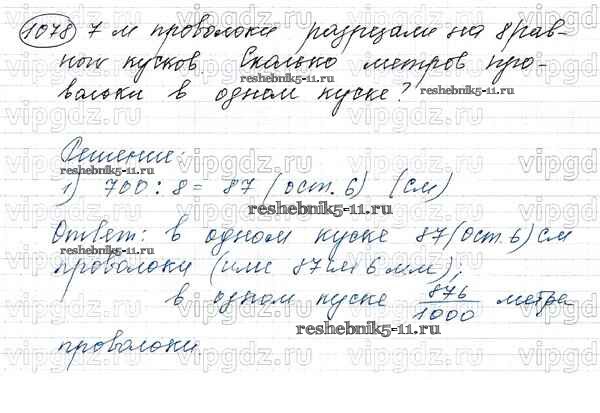 1078 7 м проволоки разрезали на 8 рав-
ных кусков. Сколько метров про-
reshebnik5-11.ru
волоки в одном куске?
reshebnik5-11.ru
Решение:
1) 700 : 8 = 87 (ост. 6) (см)
reshebnik5-11.ru
Ответ: в одном куске 87 (ост. 6) см
reshebnik5-11.ru
проволоки (или 87 м 6 мм);
в одном куске 876/1000 метра
reshebnik5-11.ru
проволоки.
vipgdz.ru vipgdz.ru vipgdz.ru vipgdz.ru